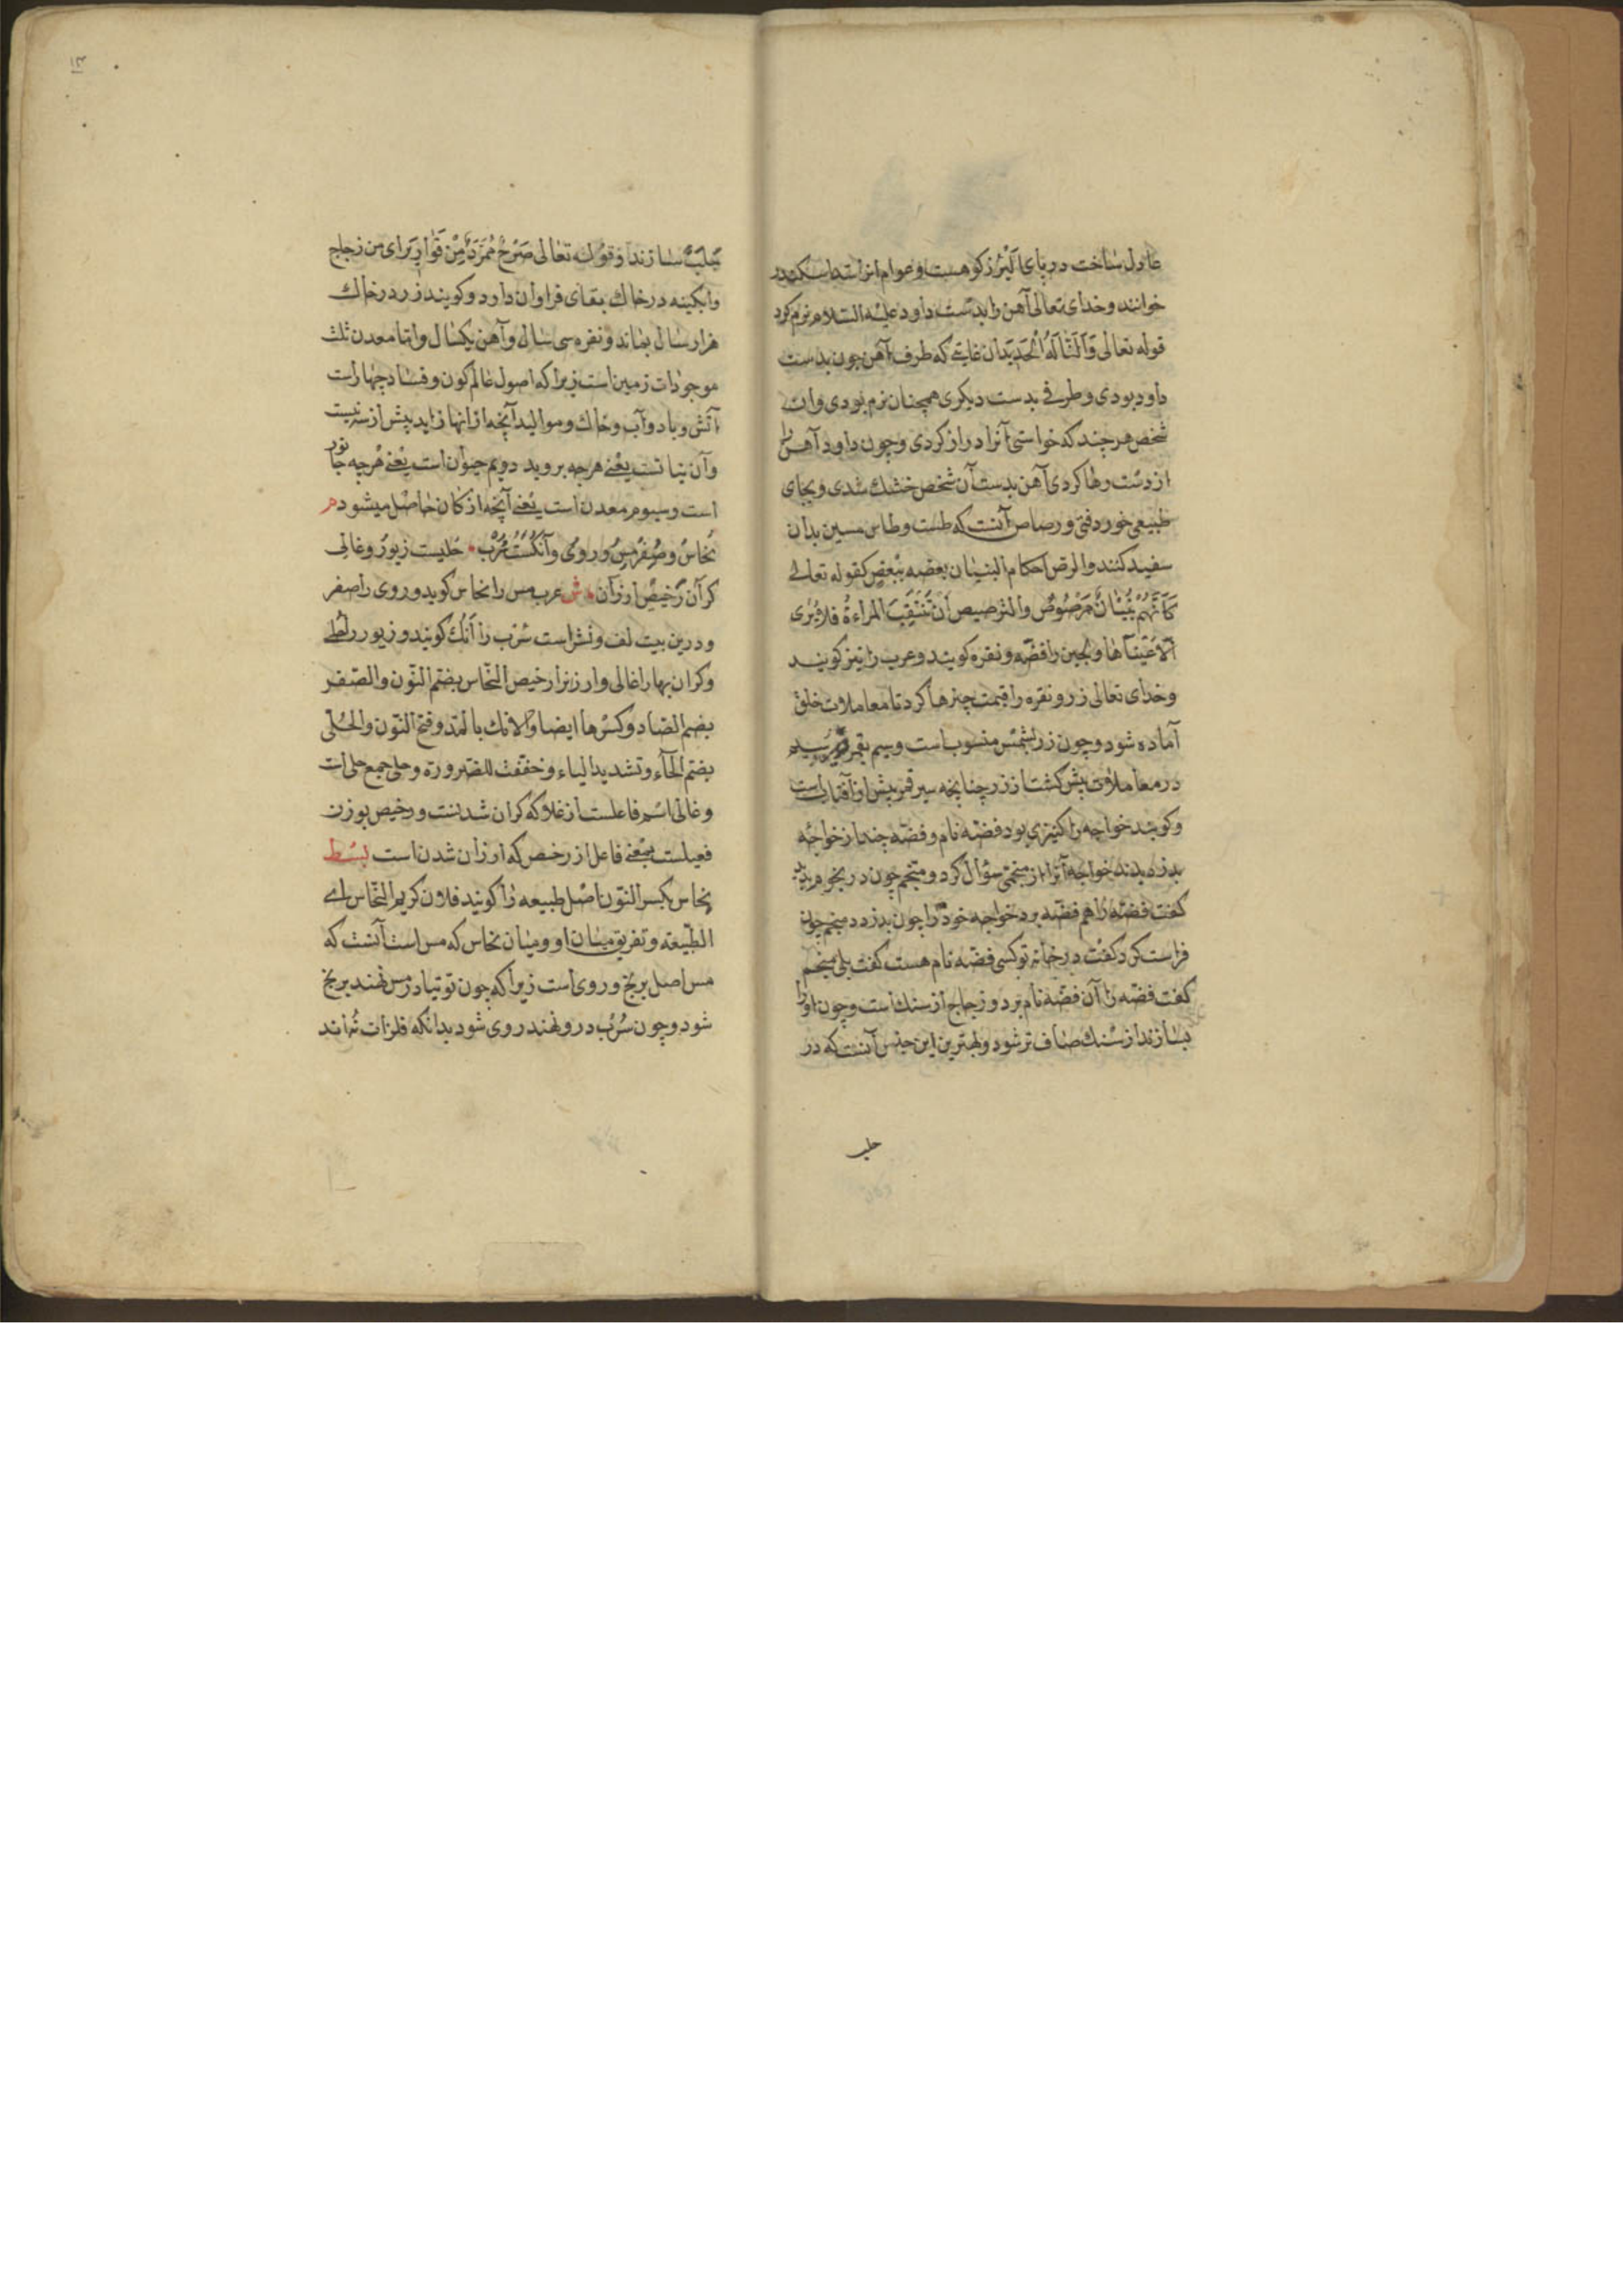 عادل ساخت در پای البرز کوهست و عوام انرا سد اسکندر
خوانند و خدای تعالی آهن را بدست داود علیه السلام نرم کرد
قوله تعالی وَاَلَنّا لَهُ الْحَدید بدان غایتی که طرف آهن چون بدست
داود بودی و طرفی بدست دیکری همچنان نرم بودی وان
شخص هر چند که خواستی آنرا دراز کردی و چون داود آهن را
از دست رها کردی آهن بدست آن شخص خشک شدی و بجای
طبیعی خود رفتی و رصاص آنست که طست و طاس مسین بدان
سفید کنند والرص احکام البنیان بعضه ببعض کقوله تعالی
کَاَنَّهُمْ بُنْیانٌ مَرْصُوصٌ والترصیص اَنْ تَنَتَقِبَ المراءةُ فلا یُری
الّا عَیْناها و لجین را فضّه و نقره کویند و عرب را نیز کویند
و خدای تعالی زر و نقره را قیمت چیزها کرد تا معاملات خلق
آماده شود و چون زر بشمس منسوب است و سیم بقمر سیم
در معاملات بیش کشت از زر چنانچه سیر قمر بیش از آفتابست
و کویند خواجه را کنیزی بود فضّه نام و فضّه چند از خواجه
بدزدیدند خواجه آنرا از منجّمی سؤال کرد و منجّم چون در نجوم بدید
کفت فضّه را هم فضّه برد خواجه خود را چون بدزدد منجم چون
فراست کرد کفت در خانه تو کسی فضّه نام هست کفت بلی منجم
کفت فضّه را آن فضّه نام برد و زجاج از سنک است و چون او را
بسازند از سنک صاف تر شود و بهترین این جنس آنست که در
حلب
۱۳
حَلَبْ سازند و قوله تعالی صَرْحٌ مُمَرَّدٌ مِنْ قَوٰاریر ای من زجاج
و ابکینه در خاک بقای فراوان دارد و کویند زر در خاک
هزار سال بماند و نقره سی سال و آهن یکسال و اما معدن ثلث
موجودات زمین است زیرا که اصول عالم کون و فساد چهار است
آتش و باد و آب و خاک و موالید آنچه از انها زاید بیش از سه نیست
و آن نباتست یعنی هرچه بروید دویم حیوان است یعنی هرچه جانور
است و سیوم معدن است یعنی آنچه از کان حاصل میشود م
نُحاسْ و صُفْر مِسْ و رویْ و آنُکَسْت سُرُبْ • حُلیست زیوَرْ و غالی
کران رَخیصْ ارزان • ش عرب مس را نحاس کوید و روی را صفر
و درین بیت لف و نشر است سُرب را آنُک کویند و زیور را حُلی
و کران بها را غالی و ارزنرا رخیص النّحاس بضم النّون والصّفر
بضم الصاد و کسرها ایضا والانک بالمد و فتح النّون والحُلّی
بضم الحاء و تشدید الیاء و خففت للضرورة و حلی جمع حلی است
و غالی اسم فاعلست از غلا که کران شدنست و رخیص بوزن
فعیلست بمعنی فاعل از رخص که ارزان شدن است بسط
نحاس بکسر النّون اصل طبیعه را کویند فلان کریم النّحاس ای
الطّبیعة و تفریق میان او و میان نحاس که مس است آنست که
مس اصل برنج و روی است زیرا که چون توتیا در مس نهند برنج
شود و چون سُرُب درو نهند روی شود بدانکه فلزات نُه اند